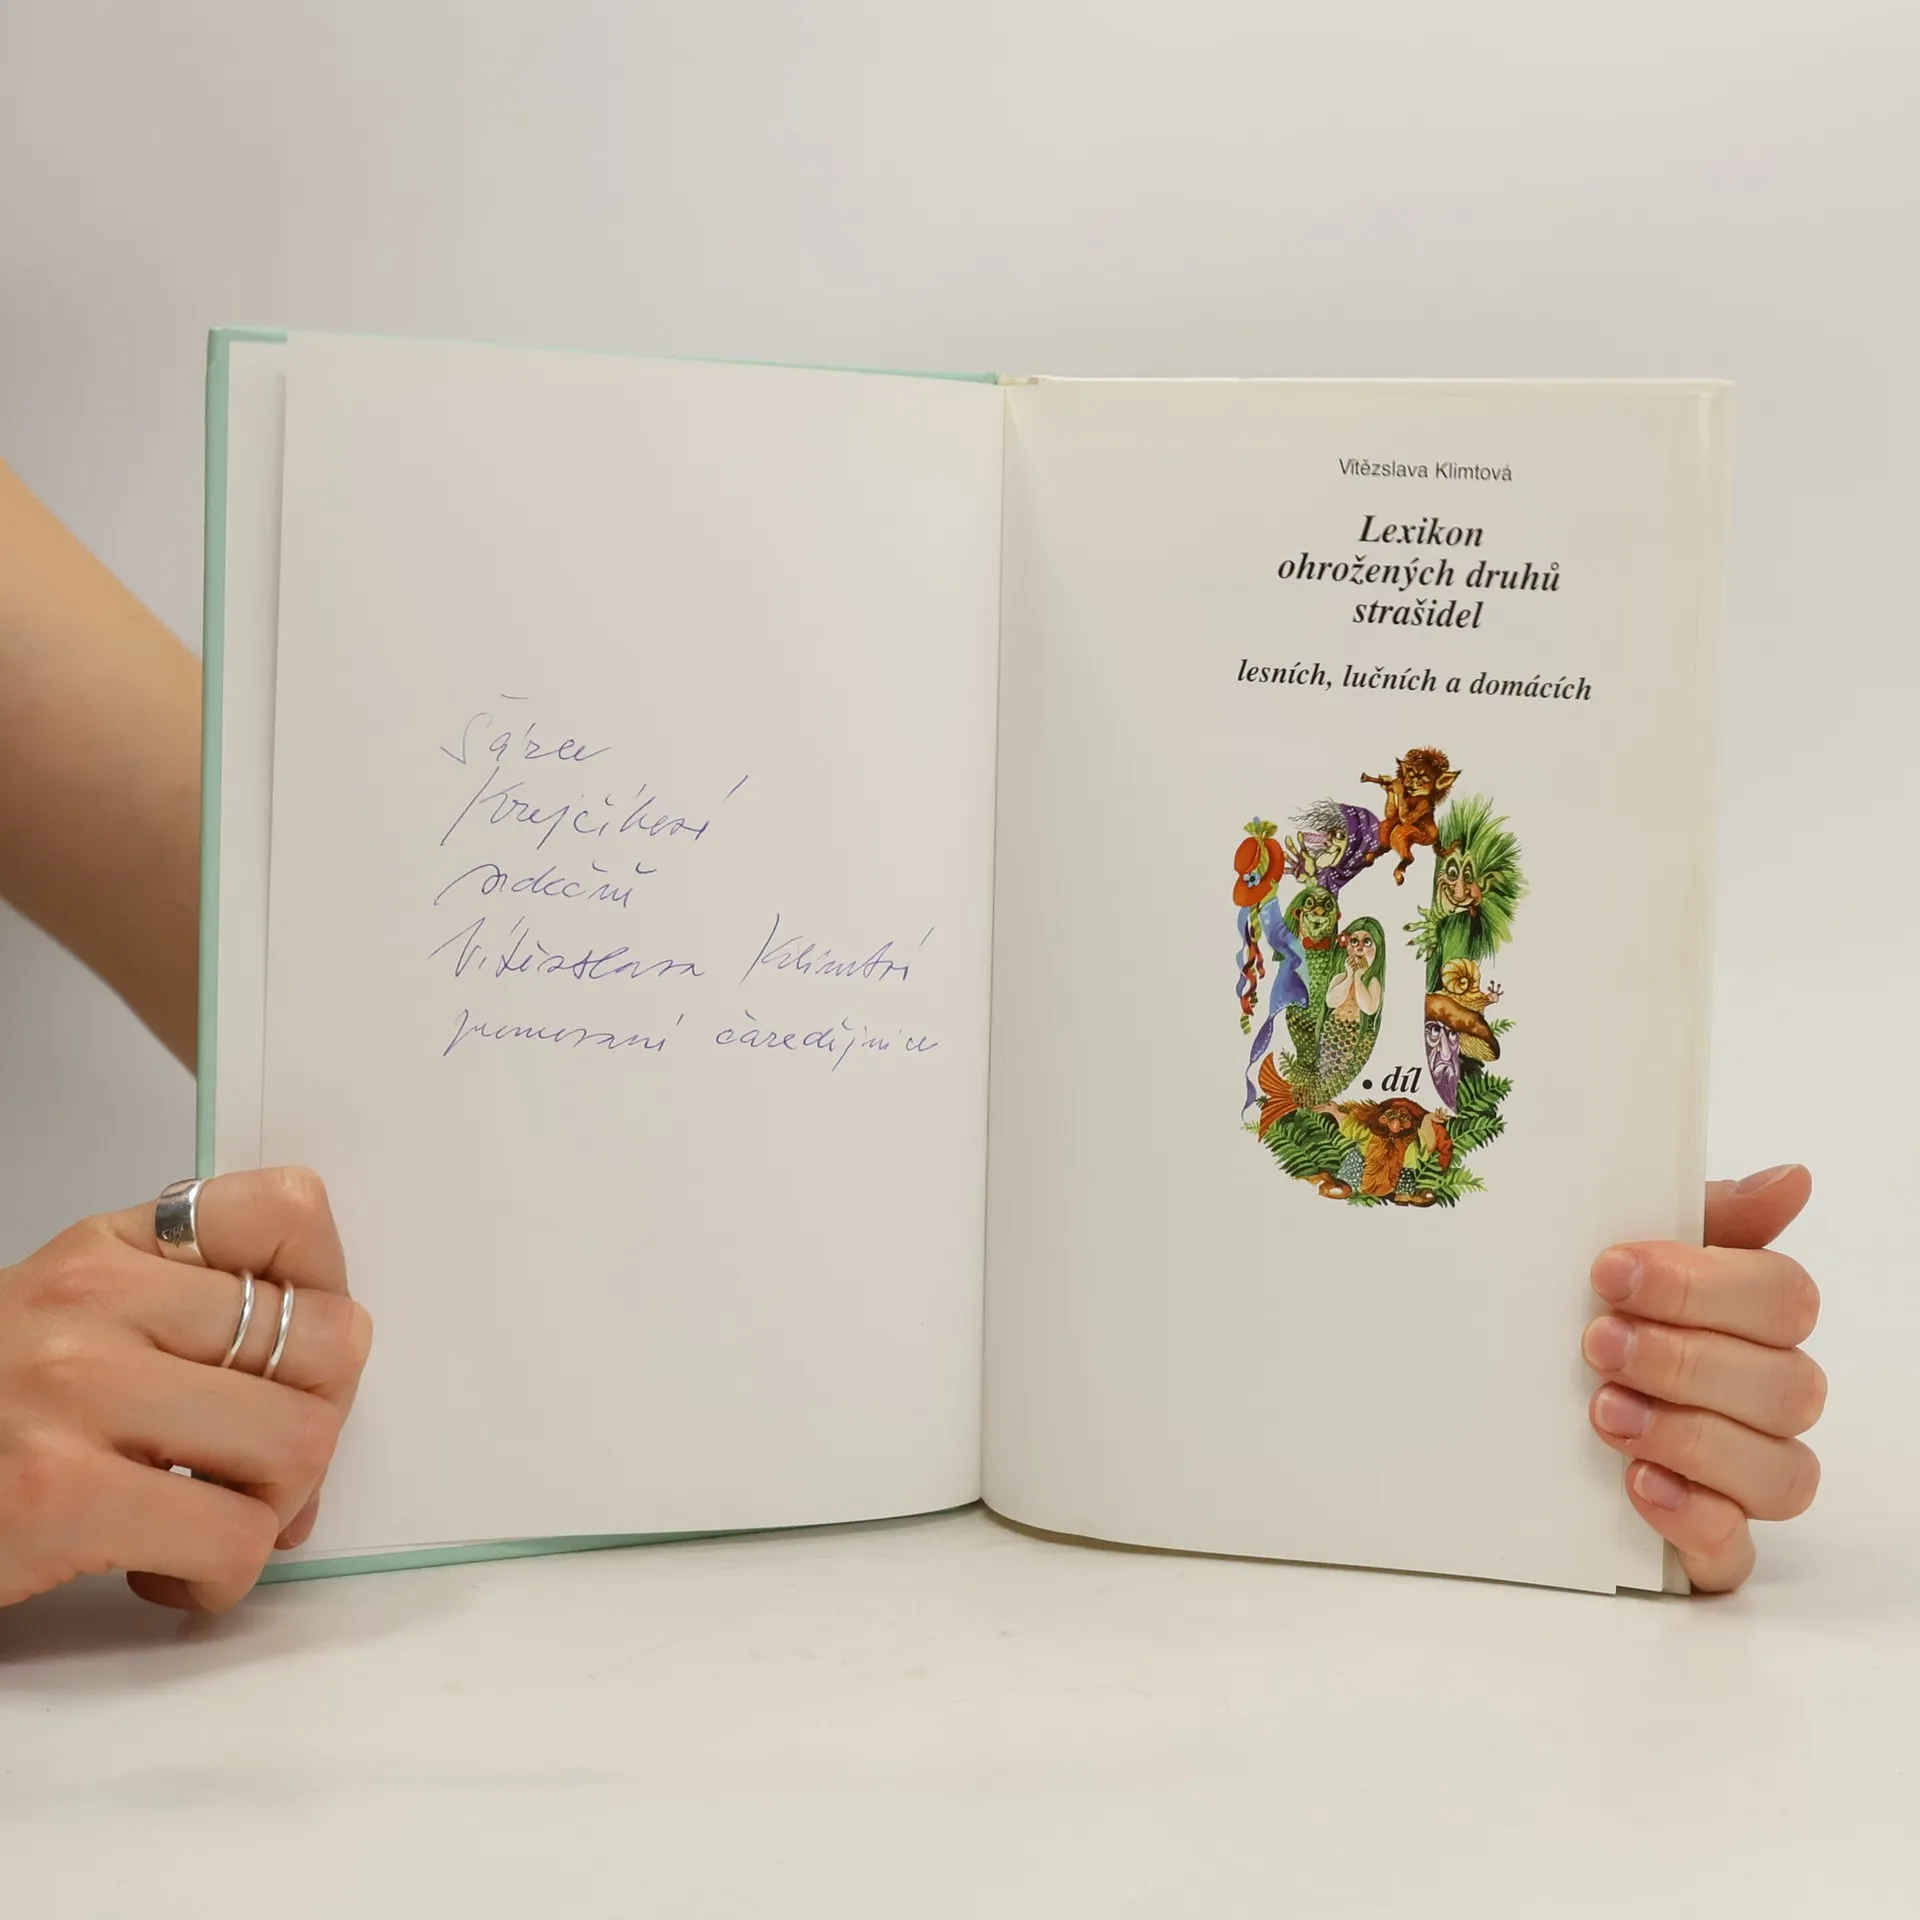 Šárce
Krejčíkové
srdečně
Vítězslava Klimtová
promovaná čarodějnice
Vítězslava Klimtová
Lexikon
ohrožených druhů
strašidel
lesních, lučních a domácích
1. díl